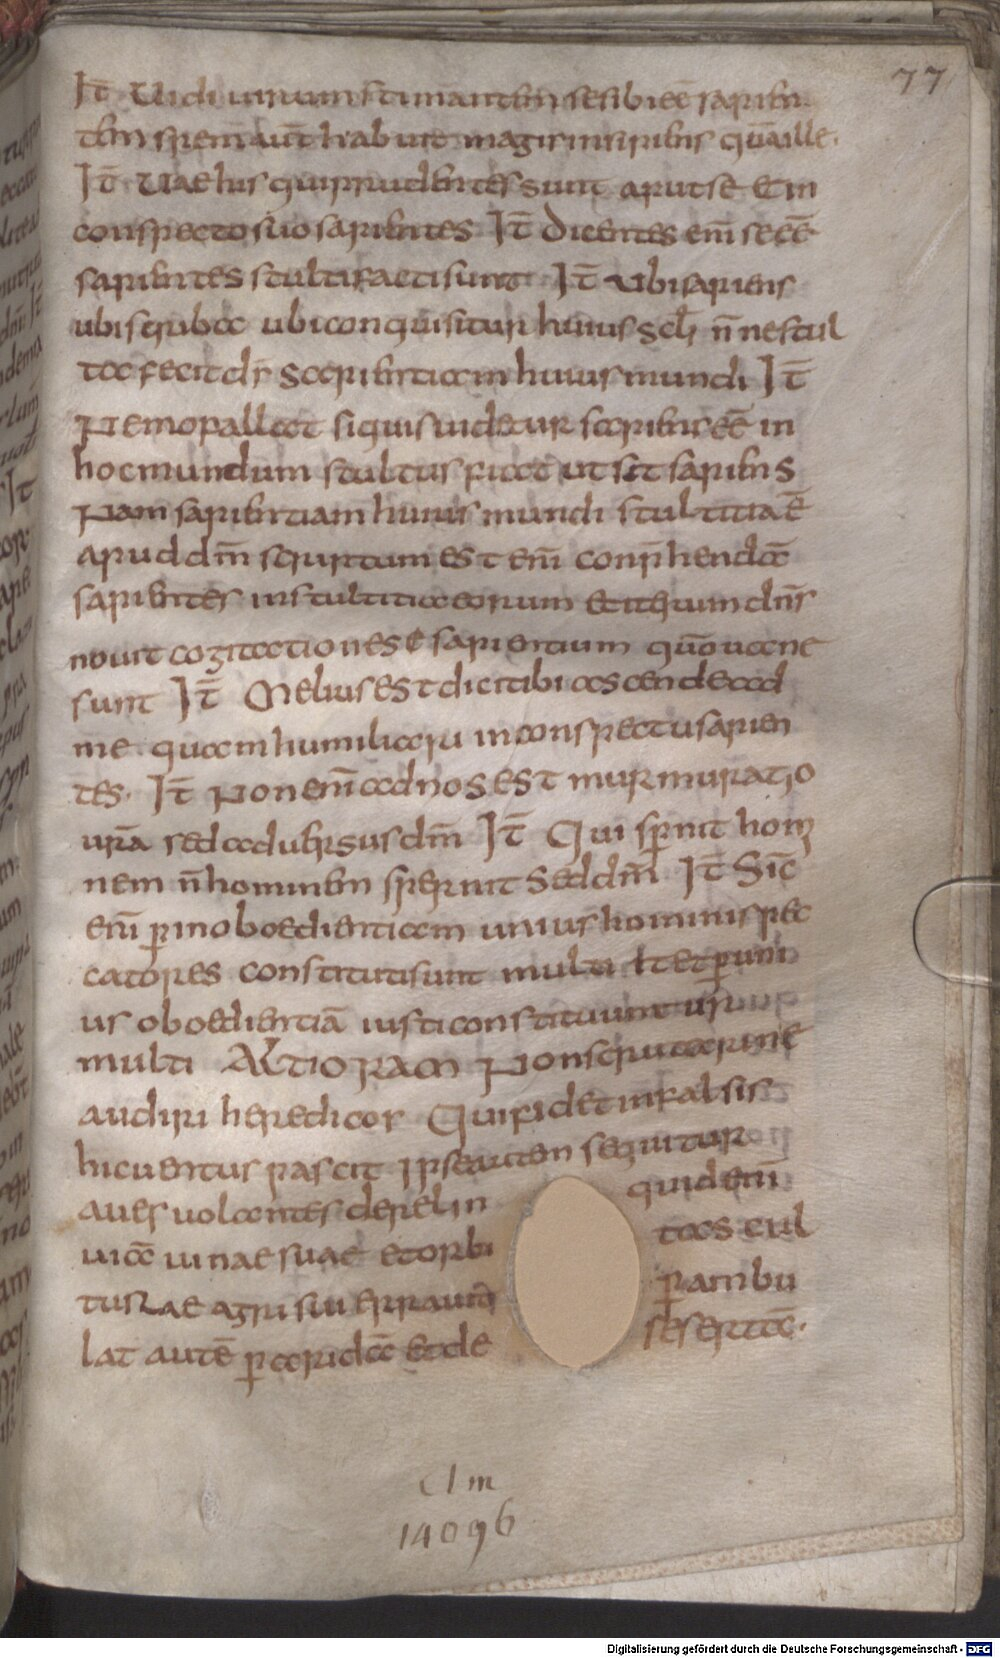 77
It̄ Uidi uirum stimantem se sibi eē sapien
tem spem aut̄ habuit magis insipiens quā ille.
It̄ Uae his qui prudentes sunt aput se et in
conspecto suo sapientes It̄ Dicentes eni̅ se eē
sapientes stulti facti sunt It̄ Ubi sapiens
ubi scriba ubi conquisitur huius scl̅i n̄ne stul
ta fecit ds̄ sapientiam huius mundi It̄
Nemo fallat si quis uidetur sapiens eē in
hoc mundum stultus fiat ut sit sapiens
Nam sapientiam huius mundi stultitia ē
apud dm̄ scriptum est eni̅ conp̄hendā
sapientes in stultitia eorum et iterum dn̄s
nouit cogitationes sapientium quō uane
sunt It̄ Melius est dici tibi ascende ad
me quam humiliari in conspectu sapien
tes. It̄ Non eni̅ ad nos est murmuratio
ur̄a sed aduersus dm̄ It̄ Qui sp̱nit homi
nem n̄ hominem spernit sed dm̄ It̄ Sic̄
eni̅ p̱ inoboedientiam unius hominis pec
catores constituti sunt multi et p̱ uni
us oboedientiā iusti constituuntur
multi Altioram Non scrutarine
audiri heredicor Qui fidet in falsis
hic uentus pascit ipse autem sequitur
aues uolantes derelin quid eni̅
uiā uinae suae et orbi tas cul
turae agri sui errauit p̱ ambu
lat autē p̱ aridā et de sertā.
Clm
14096
Digitalisierung gefördert durch die Deutsche Forschungsgemeinschaft - DFG